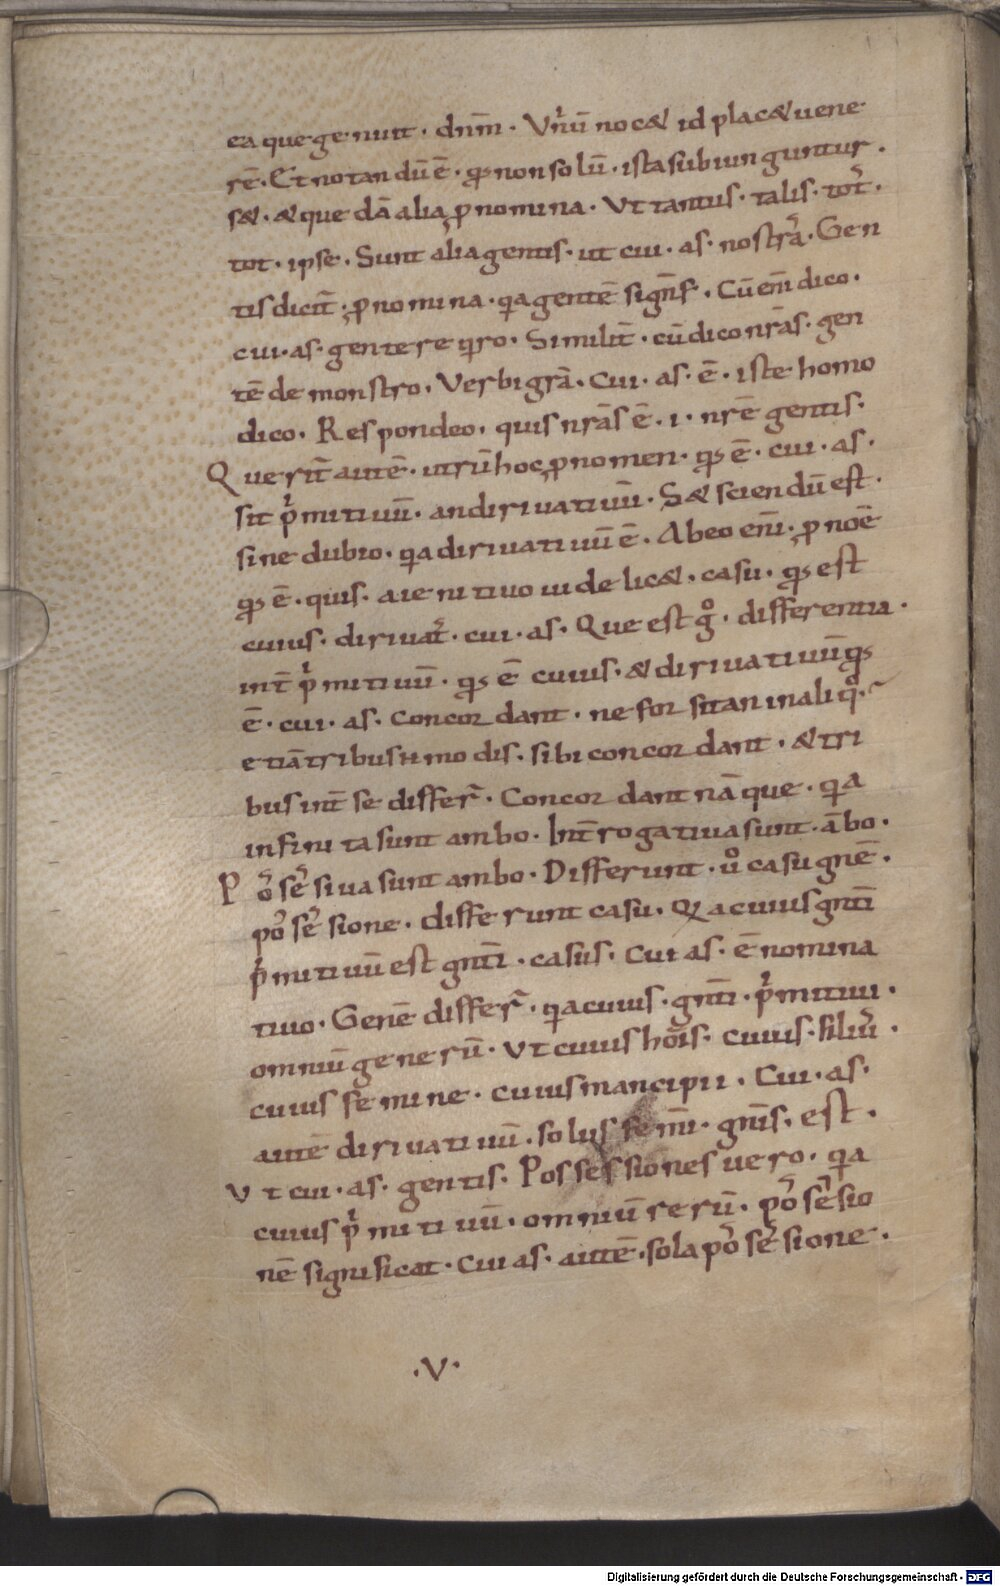 ea que genuit · dnm̄ · Vn̄ū nocet id placet uene
rē · Et notandū ē · qđ non solū · ista subiunguntur ·
sed · et quedā alia pronomina · Ut tantus · talis · tot̄ ·
tot · ipse · Sunt alia gentis · ut cui · as · nostrā · Gen
tis dicit̄ · pronomina · qia gentē signf̄ · Cū enī dico ·
cui · as · gente reqiro · Similit̄ · cū dico nr̄as · gen
tē demonstro · Verbi grā · Cui · as · ē · iste homo
dico · Respondeo · quis nr̄as ē · i · nr̄ē gentis ·
Querit̄ autē · utrū hoc pronomen · qđ ē · cui · as ·
sit p̄mitiuū · an diriuatiuū · Sed sciendū est ·
sine dubio · qia diriuatiuū ē · Ab eo enī · pronoē
qđ ē · quis · a ienitiuo uidelicet · casu · qđ est
cuius · diriuat̄ · cui · as · Que est g° · differentia ·
int̄ p̄mitiuū · qđ ē cuius · et diriuatiuū qđ
ē · cui · as · Concordant · ne forsitan in aliq° ·
etiā tribus modis · sibi concordant · et tri
bus int̄ se differ̄ · Concordant nāque · qia
infinita sunt ambo · Int̄rogatiua sunt · ābo ·
Pōsēsiua sunt ambo · Differunt · u° casu gnē ·
pōsēsione · differunt casu · Qia cuius gnt̄i
p̄mitiuū est gnt̄i · casus · Cui as · ē nomina
tiuo · Genē differ̄ · qia cuius · gnt̄i · p̄mitiui ·
omniū generū · Ut cuius hōis · cuius · filiū ·
cuius femine · cuius mancipii · Cui · as ·
autē diriuatiuū · solus femī · gnīs · est ·
Ut cui · as · gentis · Possessiones uero · qia
cuius p̄mitiuū · omniū rerū · pōsēsio
nē significat · Cui as · autē · sola pōsēsione ·
· V ·
Digitalisierung gefördert durch die Deutsche Forschungsgemeinschaft - DFG